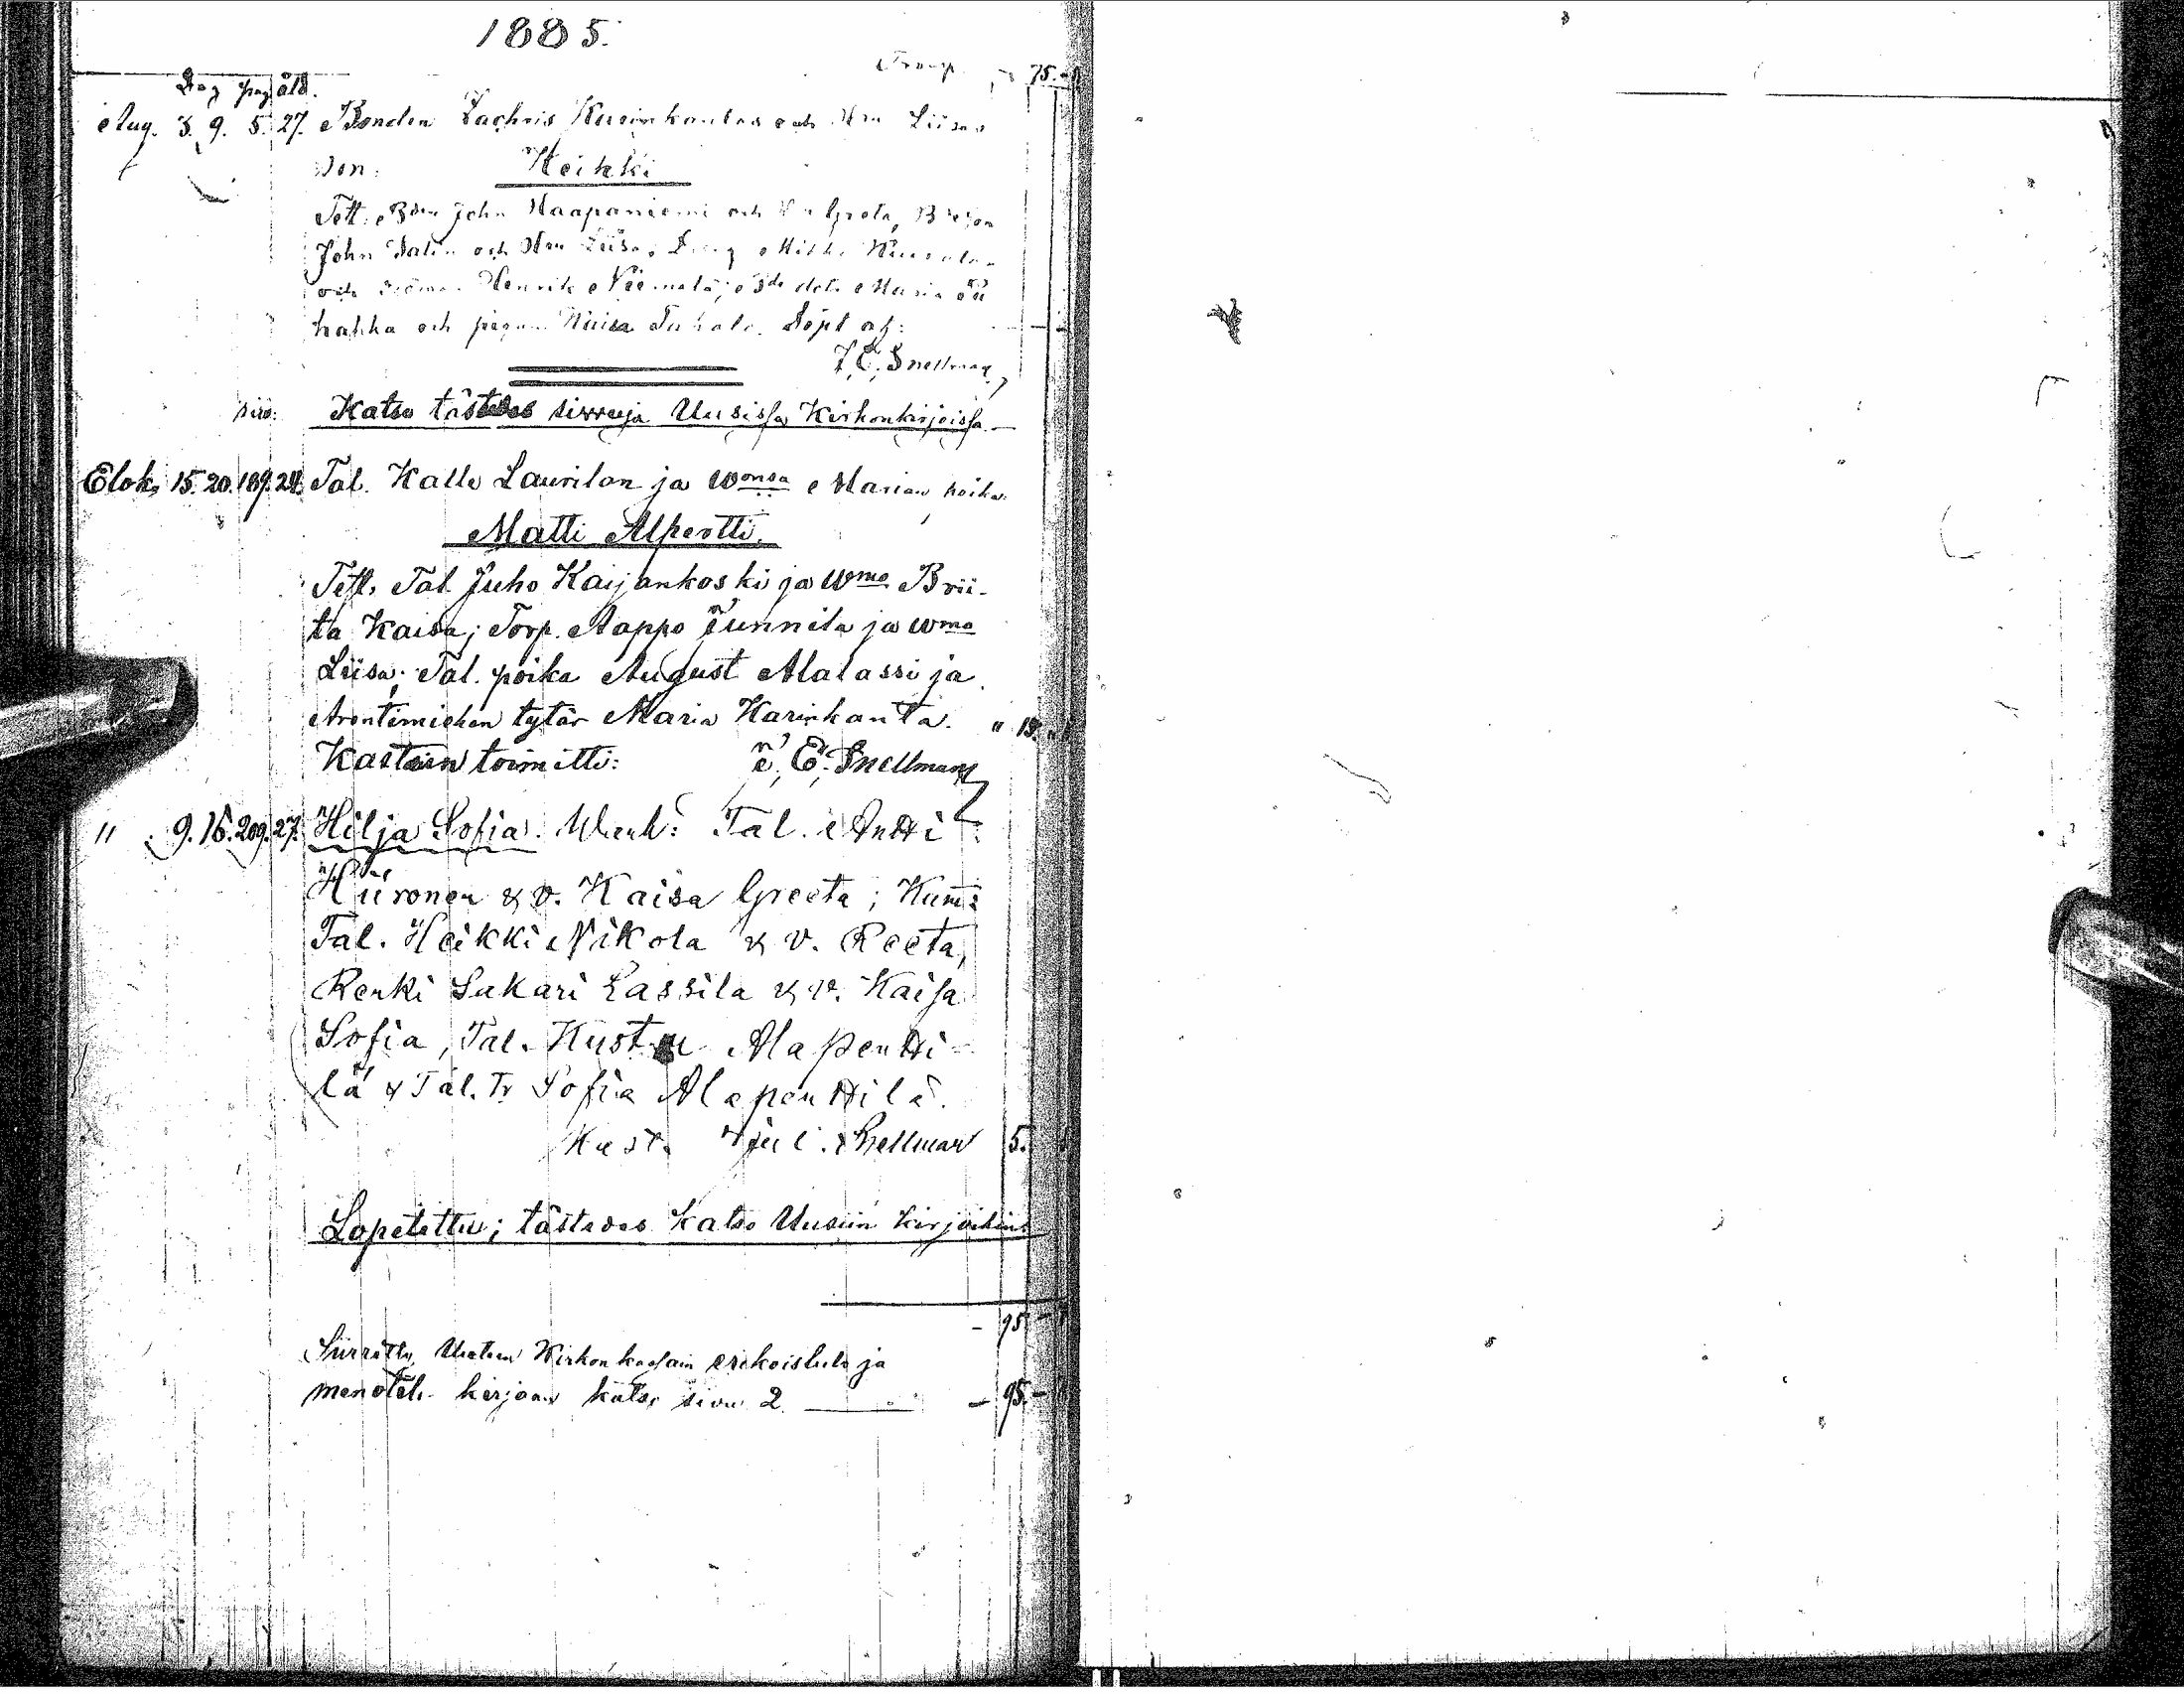 1885.
Transp. 75.-
Dag pag åld.
Aug. 3. 9. 5. 27. Bonden Zachris Karinkantas och Hru Liisas
son: Heikki
Test: Bden John Haapaniemi och Greta,
John och Hru Liisa,
och Henrik Niemelä; dotr Maria
kahka och pigan Kaisa Döpt af:
J. E. Snellman
siw: Katso tästedes siwuja Uusissa Kirkonkirjoissa.
Elok. 15. 20. 189. 24. Tal. Kalle Laurilan ja Wonsa Marian poika
Matti Alpertti.
Test. Tal Juho Kaijankoski ja Wmo Brii-
ta Kaisa; Torp. Aappo Junnila ja Wmo
Liisa; Tal. poika August Alalassi ja
Arentimiehen tytär Maria Karinkanta. " 15. "
Kasteen toimitti: J. E. Snellman
" 9. 16. 209. 27. Hilja Sofia. Wanh: Tal. Antti
Hiironen & v. Kaisa Greeta; Kum:
Tal. Heikki Nikola & v. Reeta,
Renki Sakari Lassila & v. Kaisa
Sofia, Tal. Kustu Alapentti-
lä & Tal. tr Sofia Alapenttilä.
Kast. Jul. Snellman 5.
Lopetettu; tästedes katso Uusiin Kirjoihin.
- 95 -
Siirretty Uuteen Kirkonkassain erikoistulo ja
menotili kirjaan katso sivu 2 - 95 -